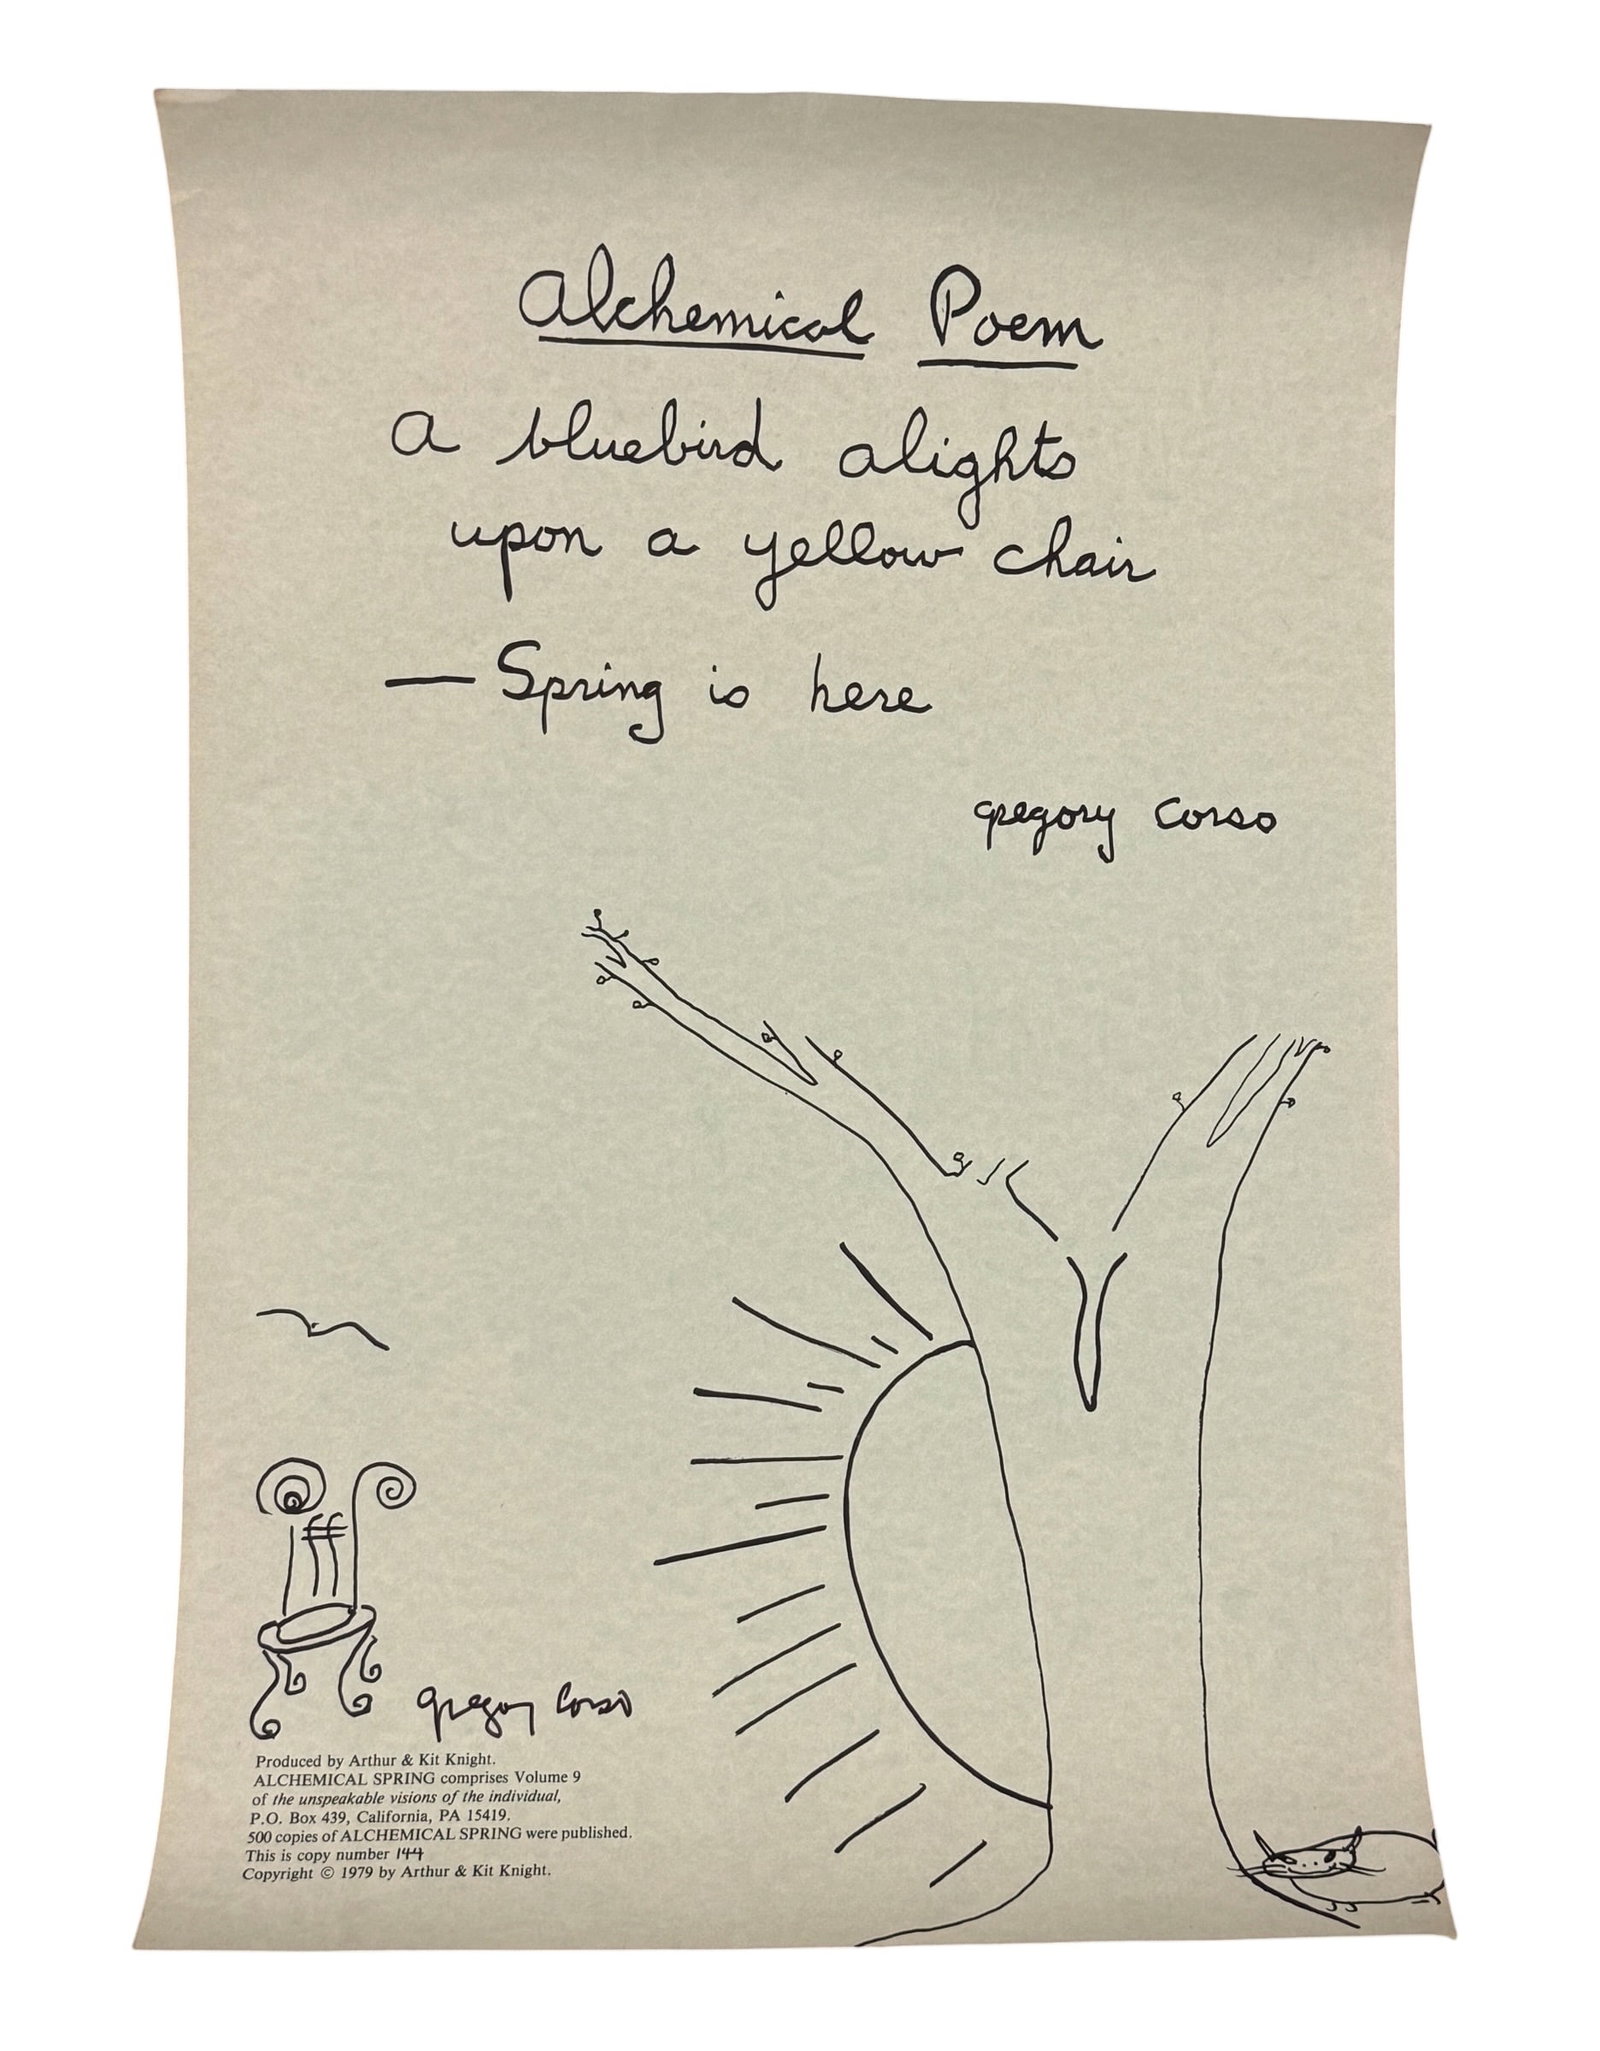 Alchemical Poem
A bluebird alights
upon a yellow chair
— Spring is here
gregory corso
gregory corso
Produced by Arthur & Kit Knight.
ALCHEMICAL SPRING comprises Volume 9
of the unspeakable visions of the individual,
P.O. Box 439, California, PA 15419.
500 copies of ALCHEMICAL SPRING were published.
This is copy number 144
Copyright © 1979 by Arthur & Kit Knight.